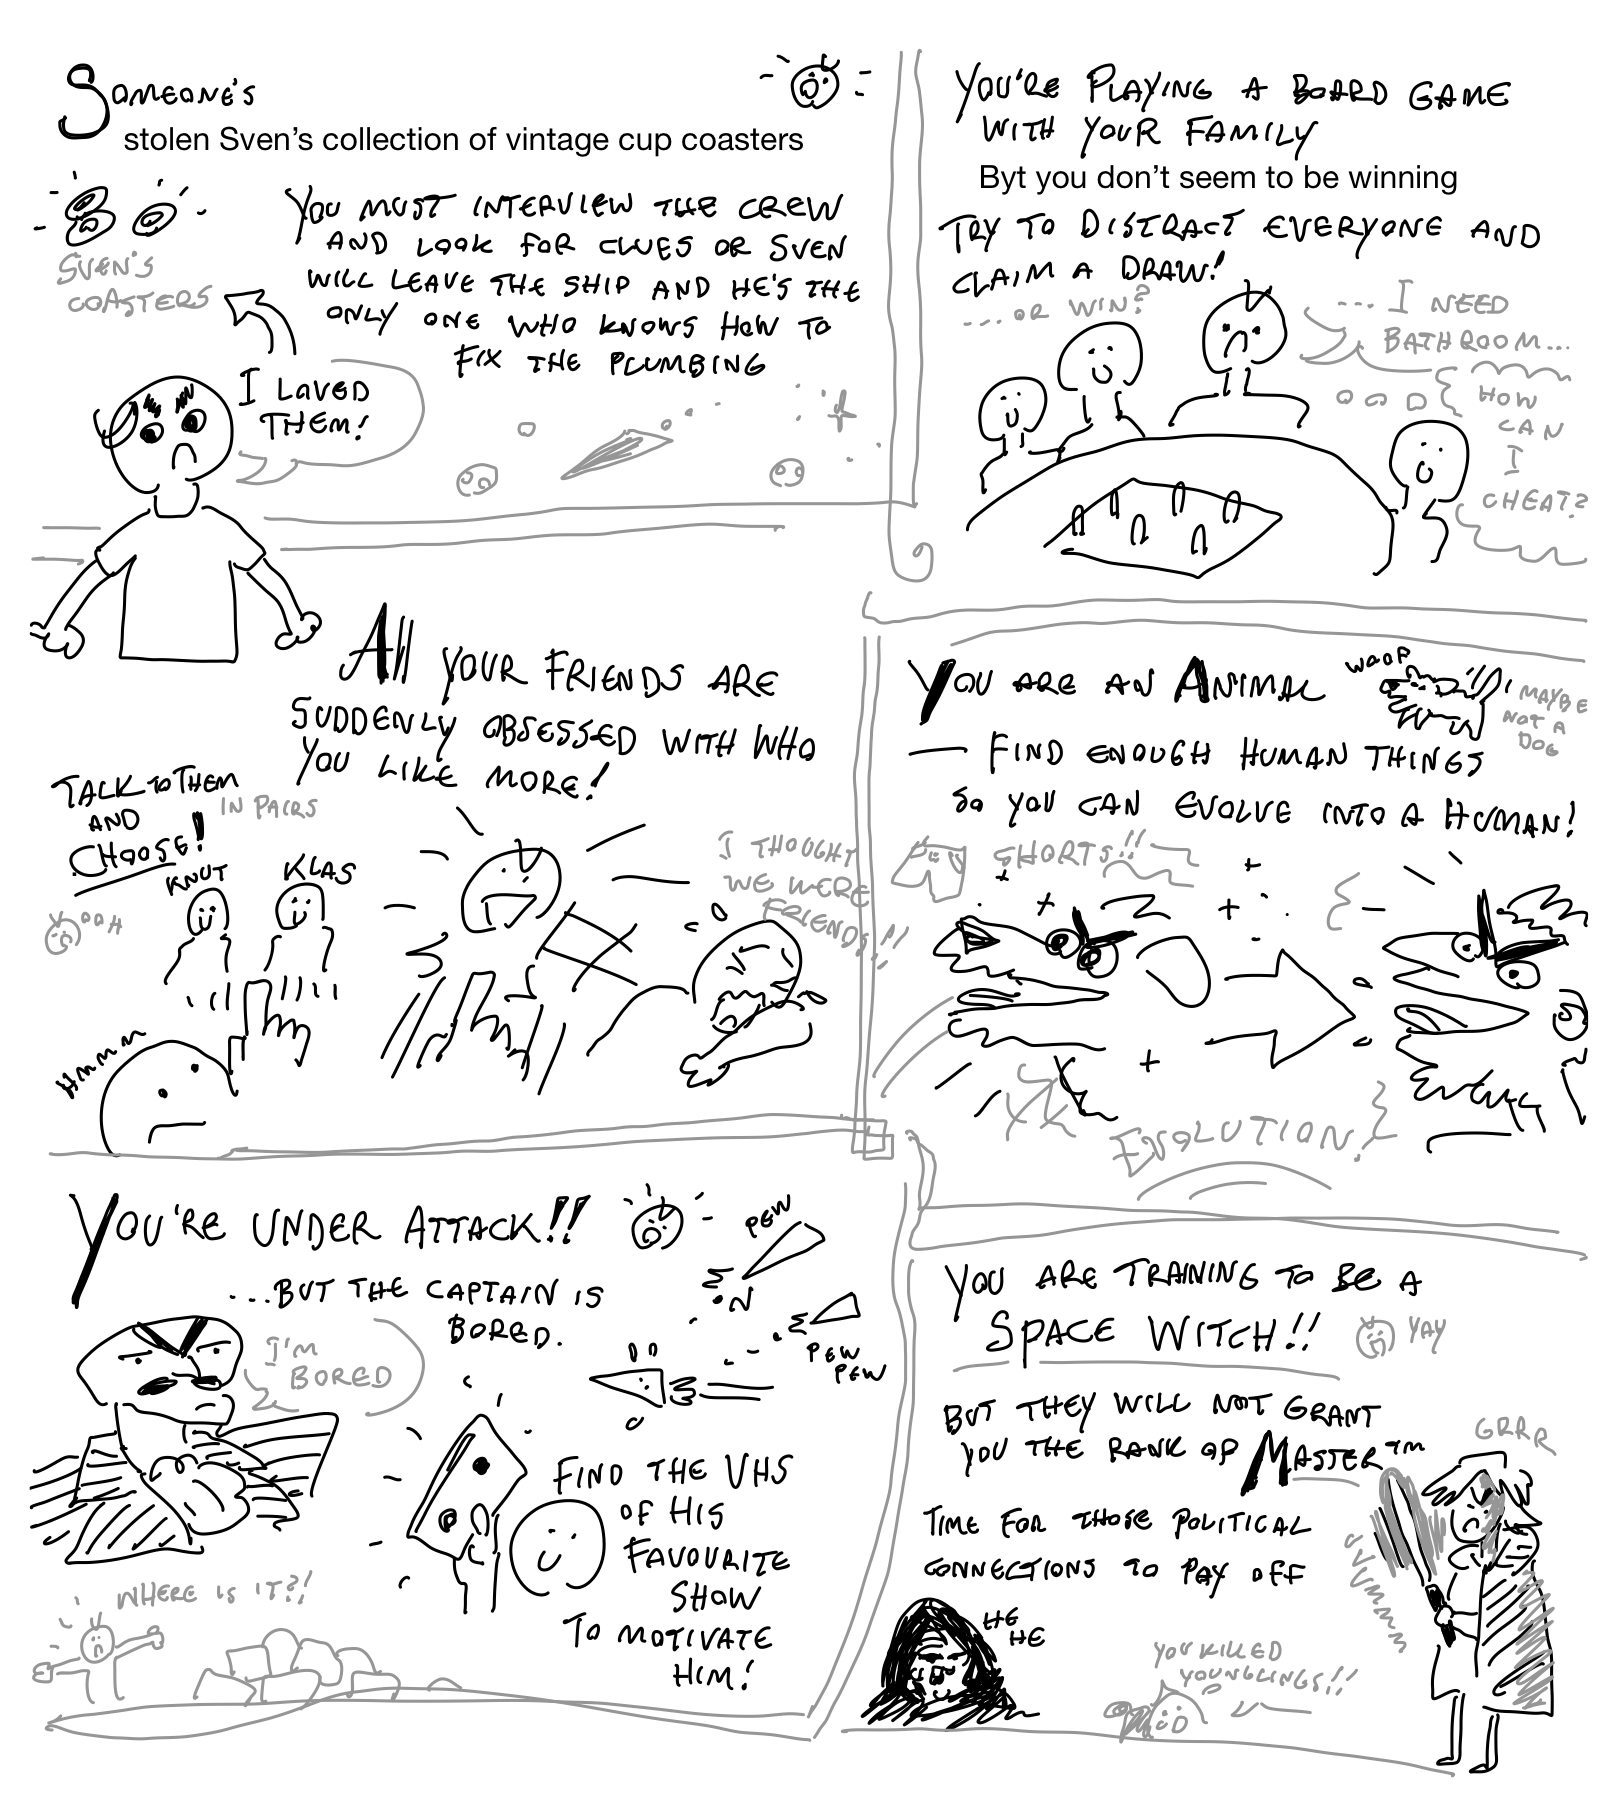 SOMEONE'S
stolen Sven's collection of vintage cup coasters
SVEN'S
COASTERS
YOU MUST INTERVIEW THE CREW
AND LOOK FOR CLUES OR SVEN
WILL LEAVE THE SHIP AND HE'S THE
ONLY ONE WHO KNOWS HOW TO
FIX THE PLUMBING
I LOVED
THEM!
YOU'RE PLAYING A BOARD GAME
WITH YOUR FAMILY
Byt you don't seem to be winning
TRY TO DISTRACT EVERYONE AND
CLAIM A DRAW!
...OR WIN?
... I NEED
BATHROOM...
HOW
CAN
I
CHEAT?
All YOUR FRIENDS ARE
SUDDENLY OBSESSED WITH WHO
YOU LIKE MORE!
TALK TO THEM
AND
CHOOSE!
IN PAIRS
KNUT
KLAS
OOH
HMMM
I THOUGHT
WE WERE
FRIENDS!!
YOU ARE AN ANIMAL
WOOF
MAYBE
NOT A
DOG
— FIND ENOUGH HUMAN THINGS
SO YOU CAN EVOLVE INTO A HUMAN!
SHORTS!!
EVOLUTION!
YOU'RE UNDER ATTACK!!
...BUT THE CAPTAIN IS
BORED.
I'M
BORED
PEW
PEW
PEW
FIND THE VHS
OF HIS
FAVOURITE
SHOW
TO MOTIVATE
HIM!
WHERE IS IT?!
YOU ARE TRAINING TO BE A
SPACE WITCH!!
YAY
BUT THEY WILL NOT GRANT
YOU THE RANK OF MASTER™
GRRR
TIME FOR THOSE POLITICAL
CONNECTIONS TO PAY OFF
VVUMMM
HE
HE
YOU KILLED
YOUNGLINGS!!